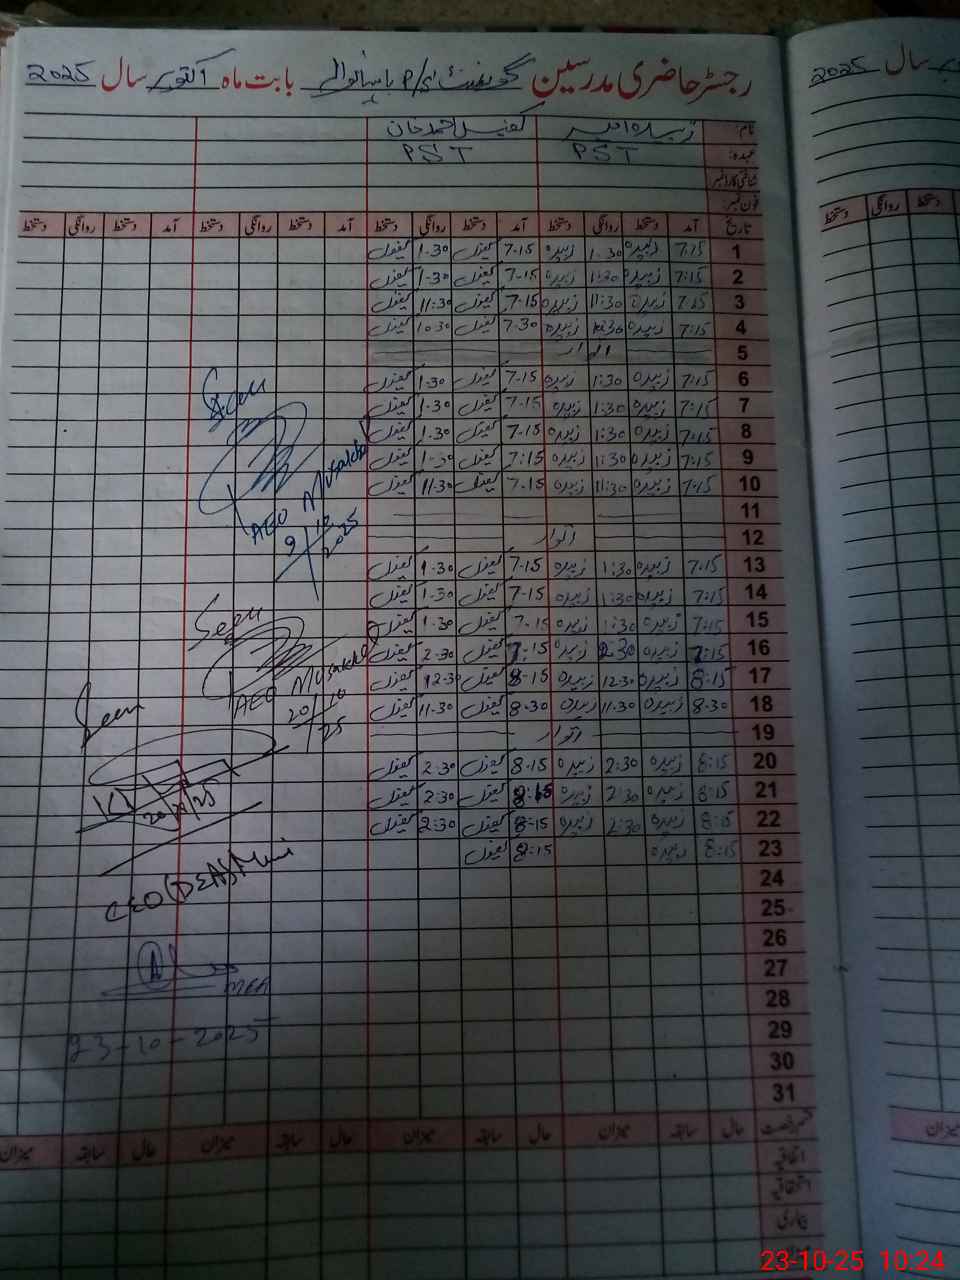 رجسٹر حاضری مدرسین گورنمنٹ P/S باہیانوالی بابت ماہ اکتوبر سال 2025
سال 2025
نام: زبیدہ امیر کفیل احمد خان
عہدہ: PST PST
شناختی کارڈ نمبر
فون نمبر:
تاریخ آمد دستخط روانگی دستخط آمد دستخط روانگی دستخط آمد دستخط روانگی دستخط آمد دستخط روانگی دستخط
دستخط روانگی دستخط
1 7:15 زبیدہ 1:30 زبیدہ 7-15 کفیل 1-30 کفیل
2 7:15 زبیدہ 1:30 زبیدہ 7-15 کفیل 1-30 کفیل
3 7:15 زبیدہ 11:30 زبیدہ 7-15 کفیل 11:30 کفیل
4 7:15 زبیدہ 10:30 زبیدہ 7-30 کفیل 10:30 کفیل
5 اتوار
6 7:15 زبیدہ 1:30 زبیدہ 7-15 کفیل 1-30 کفیل
7 7:15 زبیدہ 1:30 زبیدہ 7-15 کفیل 1-30 کفیل
8 7:15 زبیدہ 1:30 زبیدہ 7-15 کفیل 1-30 کفیل
9 7:15 زبیدہ 1:30 زبیدہ 7:15 کفیل 1-30 کفیل
10 7:15 زبیدہ 11:30 زبیدہ 7-15 کفیل 11:30 کفیل
11
12 اتوار
13 7:15 زبیدہ 1:30 زبیدہ 7-15 کفیل 1-30 کفیل
14 7:15 زبیدہ 1:30 زبیدہ 7-15 کفیل 1-30 کفیل
15 7:15 زبیدہ 1:30 زبیدہ 7-15 کفیل 1-30 کفیل
16 زبیدہ 2:30 زبیدہ کفیل 2-30 کفیل
17 8:15 زبیدہ 12:30 زبیدہ 8-15 کفیل 12:30 کفیل
18 8-30 زبیدہ 11:30 زبیدہ 8-30 کفیل 11-30 کفیل
19 اتوار
20 8:15 زبیدہ 2:30 زبیدہ 8-15 کفیل 2:30 کفیل
21 8:15 زبیدہ 2:30 زبیدہ 8:15 کفیل 2:30 کفیل
22 8:15 زبیدہ 2:30 زبیدہ 8:15 کفیل 2:30 کفیل
23 8:15 زبیدہ 8:15 کفیل
24
25
26
27
28
29
30
31
Seen
AEO Musakhel
9/10
2025
Seen
AEO Musakhel
20/10
25
Seen
20/10/25
CEO (DEA) Mwi
MEA
23-10-2025
قسم رخصت حال سابقہ میزان حال سابقہ میزان حال سابقہ میزان حال سابقہ میزان
میزان
اتفاقیہ
استحقاقیہ
بیماری
23-10-25 10:24